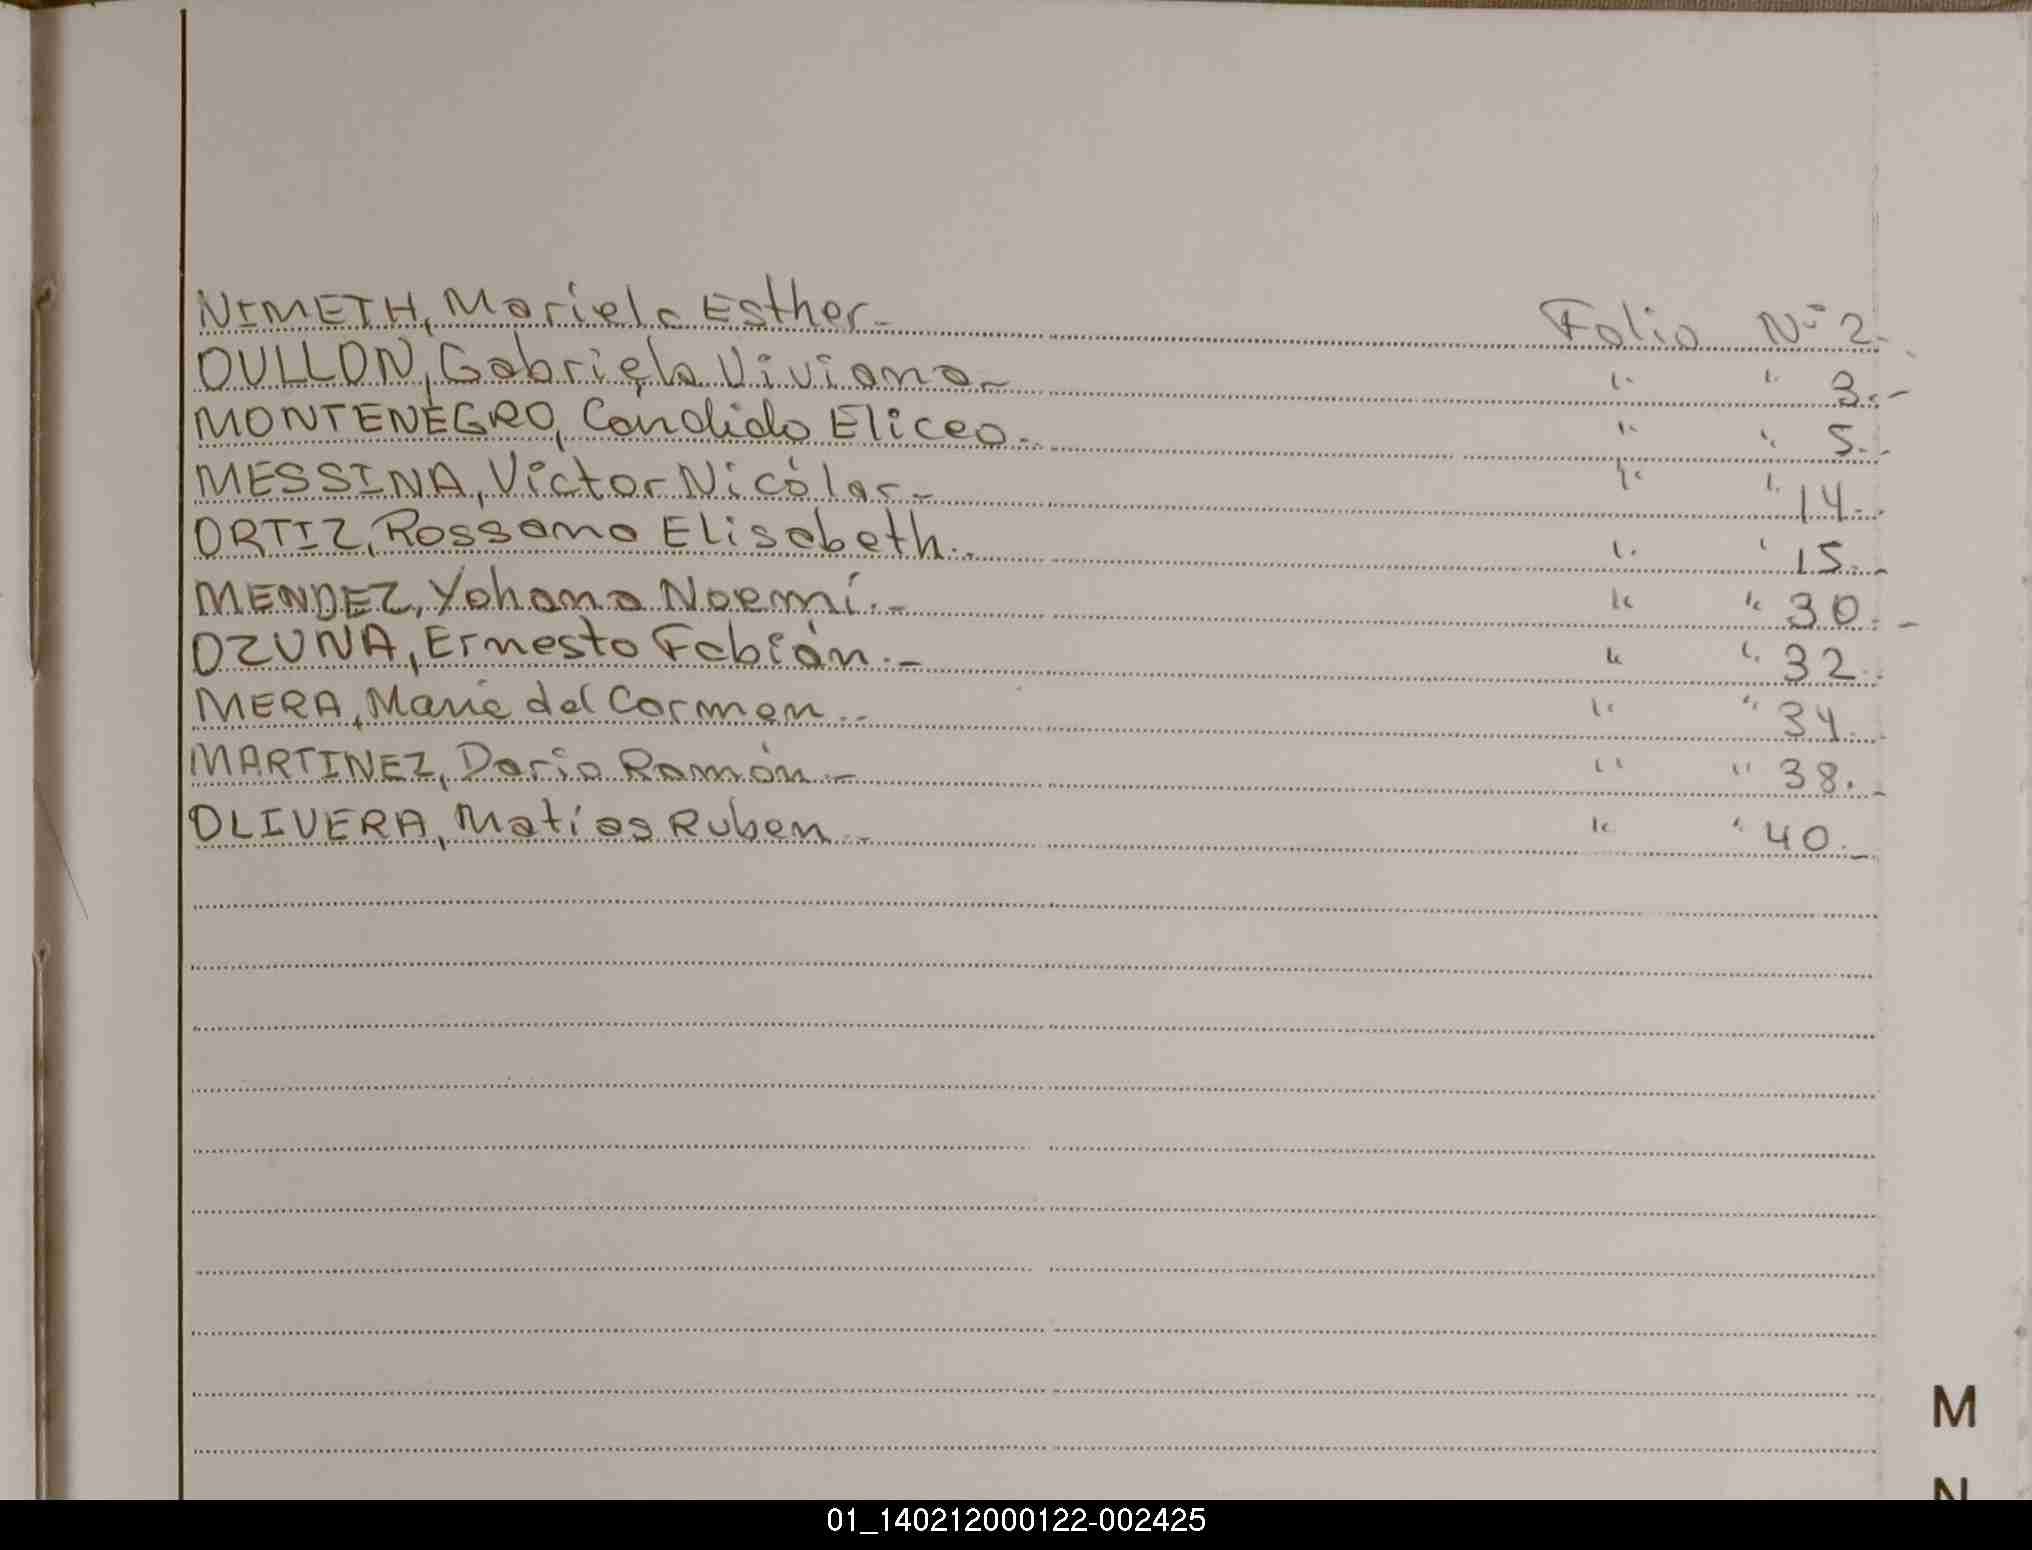 NIMETH, Mariela Esther.- Folio Nº 2.-
OULLON, Gabriela Viviana.- " " 3.-
MONTENEGRO, Candido Eliceo.- " " 5.-
MESSINA, Víctor Nicólas.- " " 14.-
ORTIZ, Rossana Elisabeth.- " " 15.-
MENDEZ, Yohana Noemí.- " " 30.-
OZUNA, Ernesto Fabián.- " " 32.-
MERA, María del Carmen.- " " 34.-
MARTINEZ, Dario Ramón.- " " 38.-
OLIVERA, Matias Ruben.- " " 40.-
M
N
01_140212000122-002425